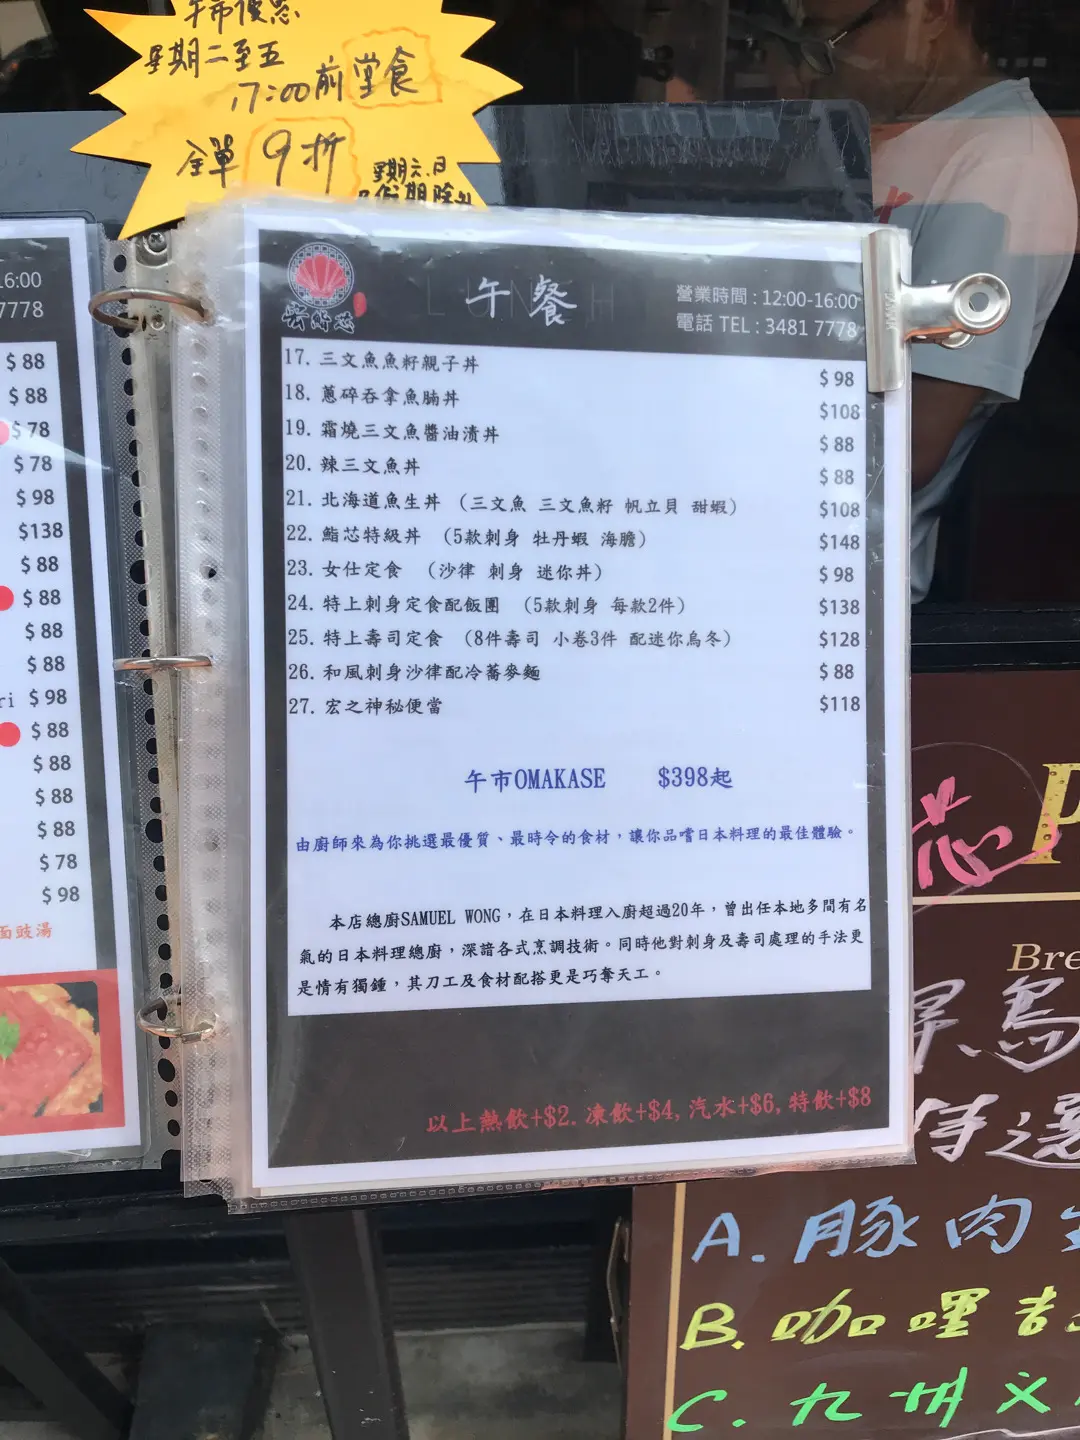 午市優惠
星期二至五
17:00前堂食
全單9折
星期六.日
16:00
7778
$88
$88
$78
$78
$98
$138
$88
$88
$88
$88
ri $98
$88
$88
$88
$88
$78
$98
面豉湯
午餐
LUNCH
營業時間 : 12:00-16:00
電話 TEL : 3481 7778
17. 三文魚魚籽親子丼 $98
18. 蔥碎吞拿魚腩丼 $108
19. 霜燒三文魚醬油漬丼 $88
20. 辣三文魚丼 $88
21. 北海道魚生丼 （三文魚 三文魚籽 帆立貝 甜蝦） $108
22. 鮨芯特級丼 （5款刺身 牡丹蝦 海膽） $148
23. 女仕定食 （沙律 刺身 迷你丼） $98
24. 特上刺身定食配飯團 （5款刺身 每款2件） $138
25. 特上壽司定食 （8件壽司 小卷3件 配迷你烏冬） $128
26. 和風刺身沙律配冷蕎麥麵 $88
27. 宏之神秘便當 $118
午市OMAKASE $398起
由廚師來為你挑選最優質、最時令的食材，讓你品嚐日本料理的最佳體驗。
本店總廚SAMUEL WONG，在日本料理入廚超過20年，曾出任本地多間有名
氣的日本料理總廚，深諳各式烹調技術。同時他對刺身及壽司處理的手法更
是情有獨鍾，其刀工及食材配搭更是巧奪天工。
以上熱飲+$2. 凍飲+$4, 汽水+$6, 特飲+$8
芯
P
Bre
烏
特選
A. 豚肉
B. 咖喱吉
C. 九州